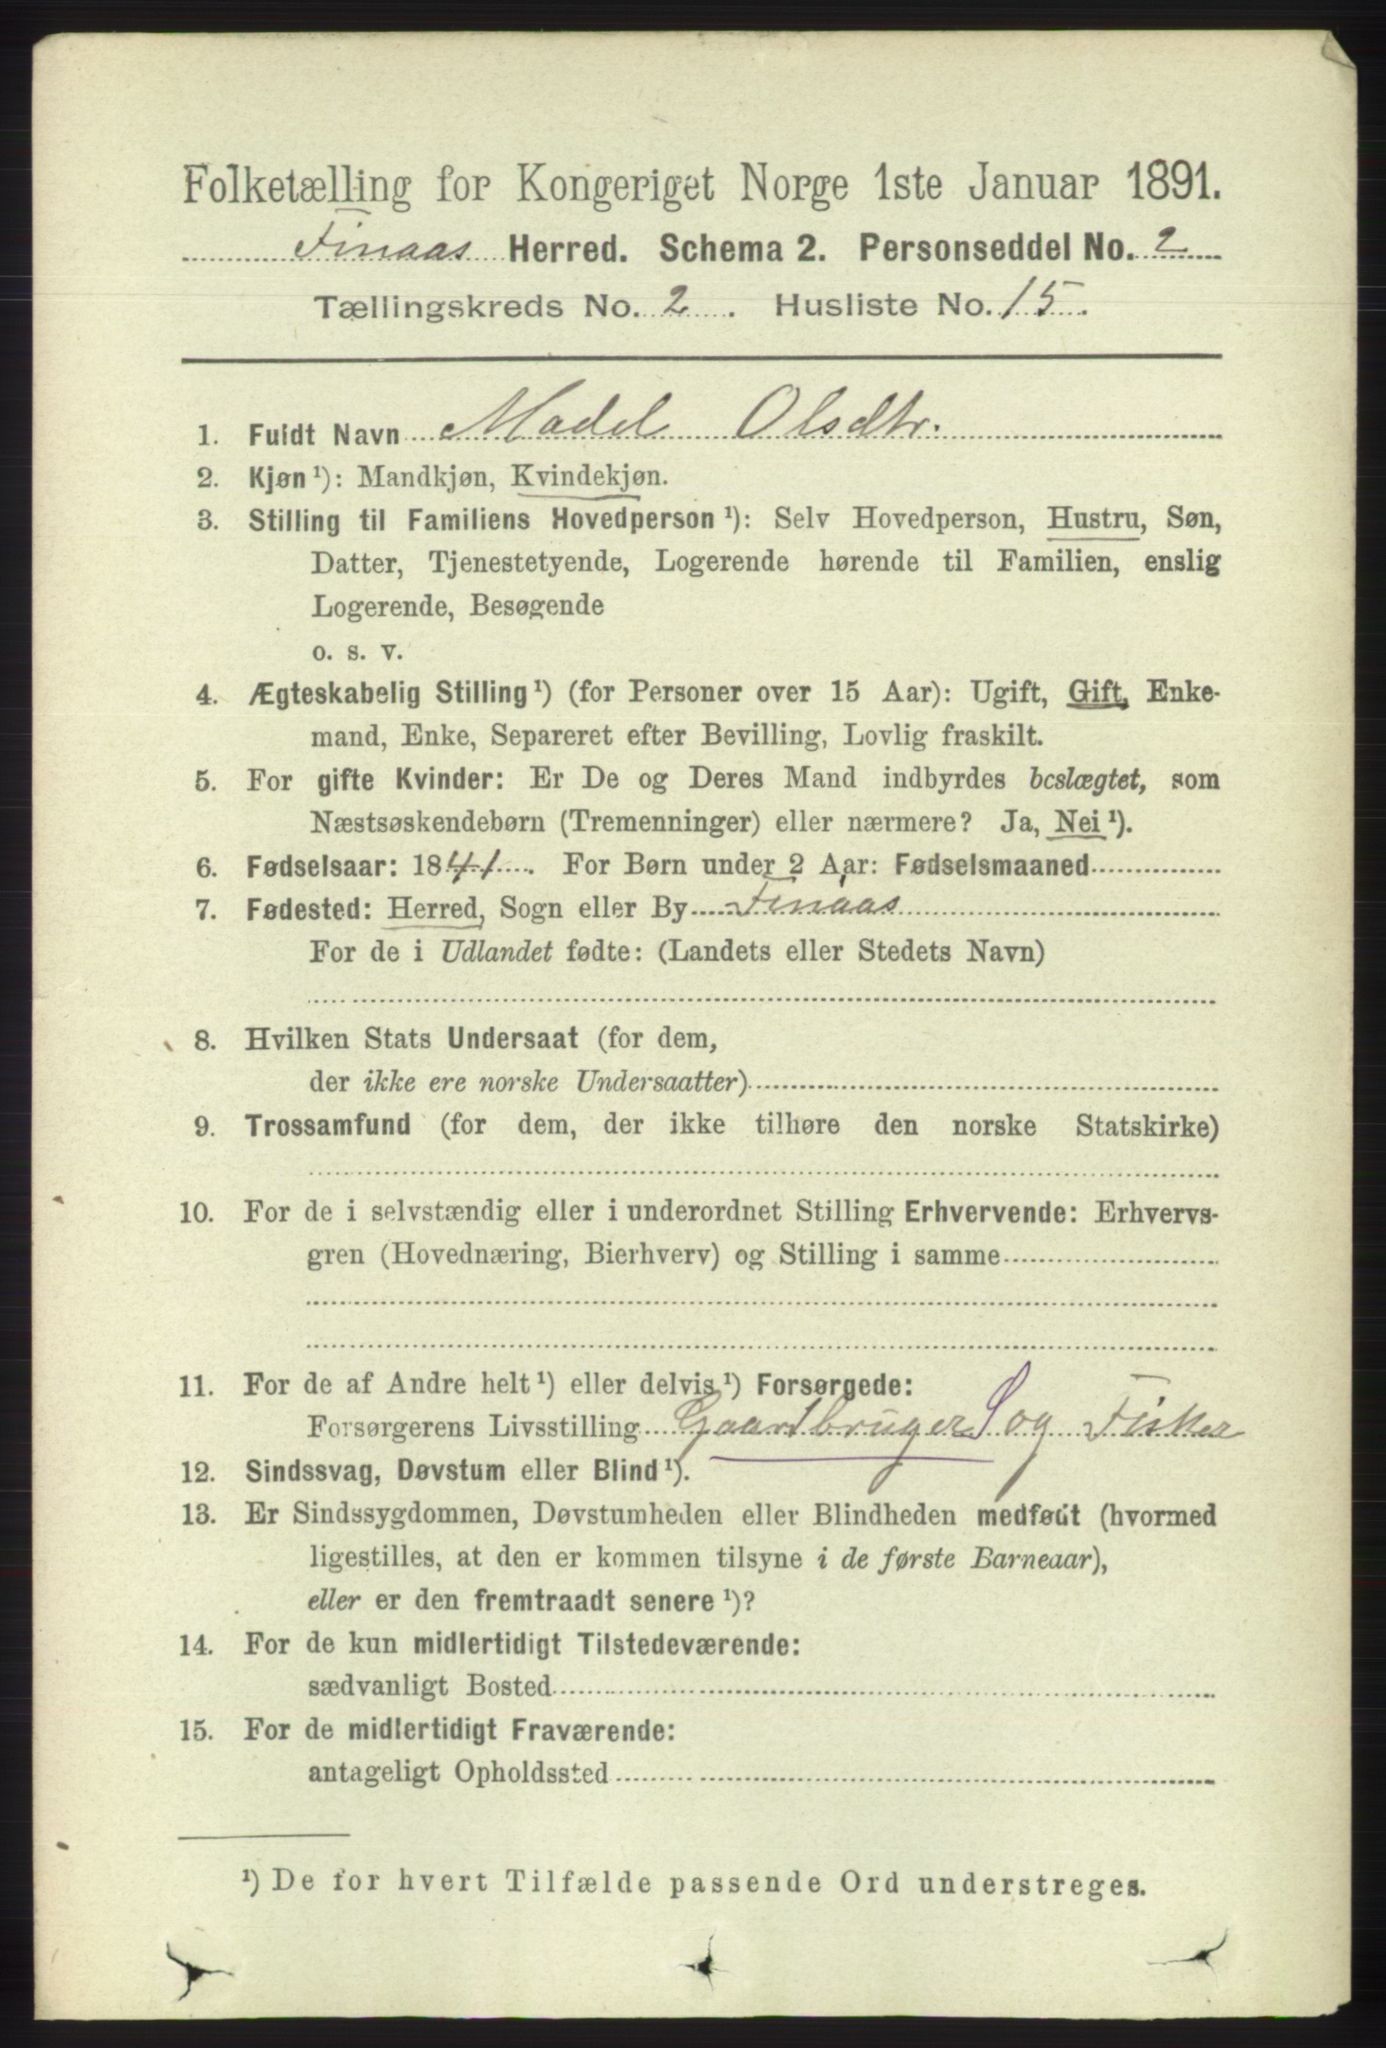 Folketælling for Kongeriget Norge 1ste Januar 1891.
Finaas Herred. Schema 2. Personseddel No. 2
Tællingskreds No. 2. Husliste No. 15.
1. Fuldt Navn Madel Olsdtr.
2. Kjøn ¹): Mandkjøn, Kvindekjøn.
3. Stilling til Familiens Hovedperson ¹): Selv Hovedperson, Hustru, Søn,
Datter, Tjenestetyende, Logerende hørende til Familien, enslig
Logerende, Besøgende
o. s. v.
4. Ægteskabelig Stilling ¹) (for Personer over 15 Aar): Ugift, Gift, Enke-
mand, Enke, Separeret efter Bevilling, Lovlig fraskilt.
5. For gifte Kvinder: Er De og Deres Mand indbyrdes beslægtet, som
Næstsøskendebørn (Tremenninger) eller nærmere? Ja, Nei ¹).
6. Fødselsaar: 1841. For Børn under 2 Aar: Fødselsmaaned
7. Fødested: Herred, Sogn eller By Finaas
For de i Udlandet fødte: (Landets eller Stedets Navn)
8. Hvilken Stats Undersaat (for dem,
der ikke ere norske Undersaatter)
9. Trossamfund (for dem, der ikke tilhøre den norske Statskirke)
10. For de i selvstændig eller i underordnet Stilling Erhvervende: Erhvervs-
gren (Hovednæring, Bierhverv) og Stilling i samme
11. For de af Andre helt ¹) eller delvis ¹) Forsørgede:
Forsørgerens Livsstilling Gaardbruger S og Fisker
12. Sindssvag, Døvstum eller Blind ¹).
13. Er Sindssygdommen, Døvstumheden eller Blindheden medfødt (hvormed
ligestilles, at den er kommen tilsyne i de første Barneaar),
eller er den fremtraadt senere ¹)?
14. For de kun midlertidigt Tilstedeværende:
sædvanligt Bosted
15. For de midlertidigt Fraværende:
antageligt Opholdssted
¹) De for hvert Tilfælde passende Ord understreges.